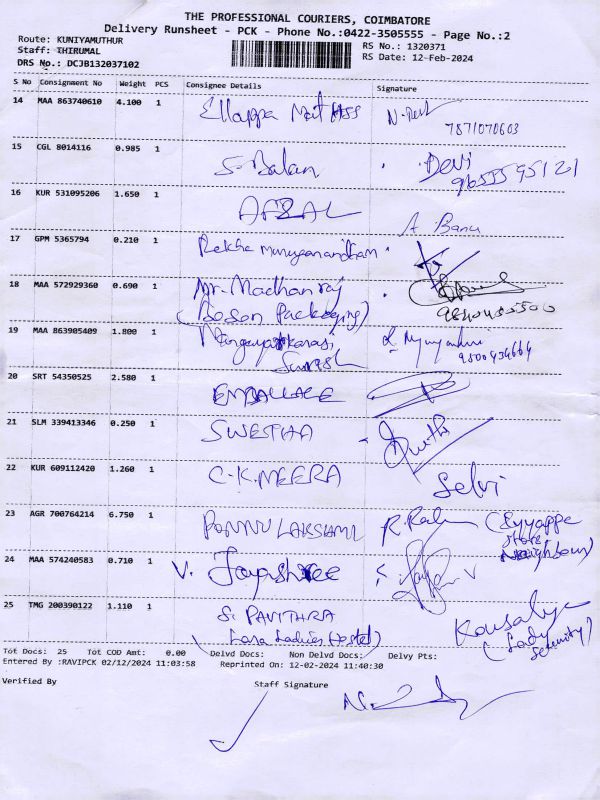 THE PROFESSIONAL COURIERS, COIMBATORE
Delivery Runsheet - PCK - Phone No.:0422-3505555 - Page No.:2
Route: KUNIYAMUTHUR
Staff: THIRUMAL
RS No.: 1320371
DRS No.: DCJB132037102
RS Date: 12-Feb-2024
S No Consignment No Weight PCS Consignee Details Signature
14 MAA 863740610 4.100 1 Ellappa
7871070603
15 CGL 8014116 0.985 1 S. Balan Devi
9655595121
16 KUR 531095206 1.650 1 AFZAL A Banu
17 GPM 5365794 0.210 1 Rekha Murugaanandham
18 MAA 572929360 0.690 1 Mr. Madhan raj
(Boson Packaging)
19 MAA 863905409 1.800 1
Suresh 9500434664
20 SRT 54350525 2.580 1 EMBALLAGE
21 SLM 339413346 0.250 1 SWETHA
22 KUR 609112420 1.260 1 C.K.MEERA Selvi
23 AGR 700764214 6.750 1 PONNU LAKSHAMI (Eyyappa
Store
Neighbour)
24 MAA 574240583 0.710 1 V. Jayashree
25 TMG 200390122 1.110 1 S. PAVITHRA Kousalya
(Lara Ladies Hostel) (Lady
Security)
Tot Docs: 25 Tot COD Amt: 0.00 Delvd Docs: Non Delvd Docs: Delvy Pts:
Entered By :RAVIPCK 02/12/2024 11:03:58 Reprinted On: 12-02-2024 11:40:30
Verified By Staff Signature